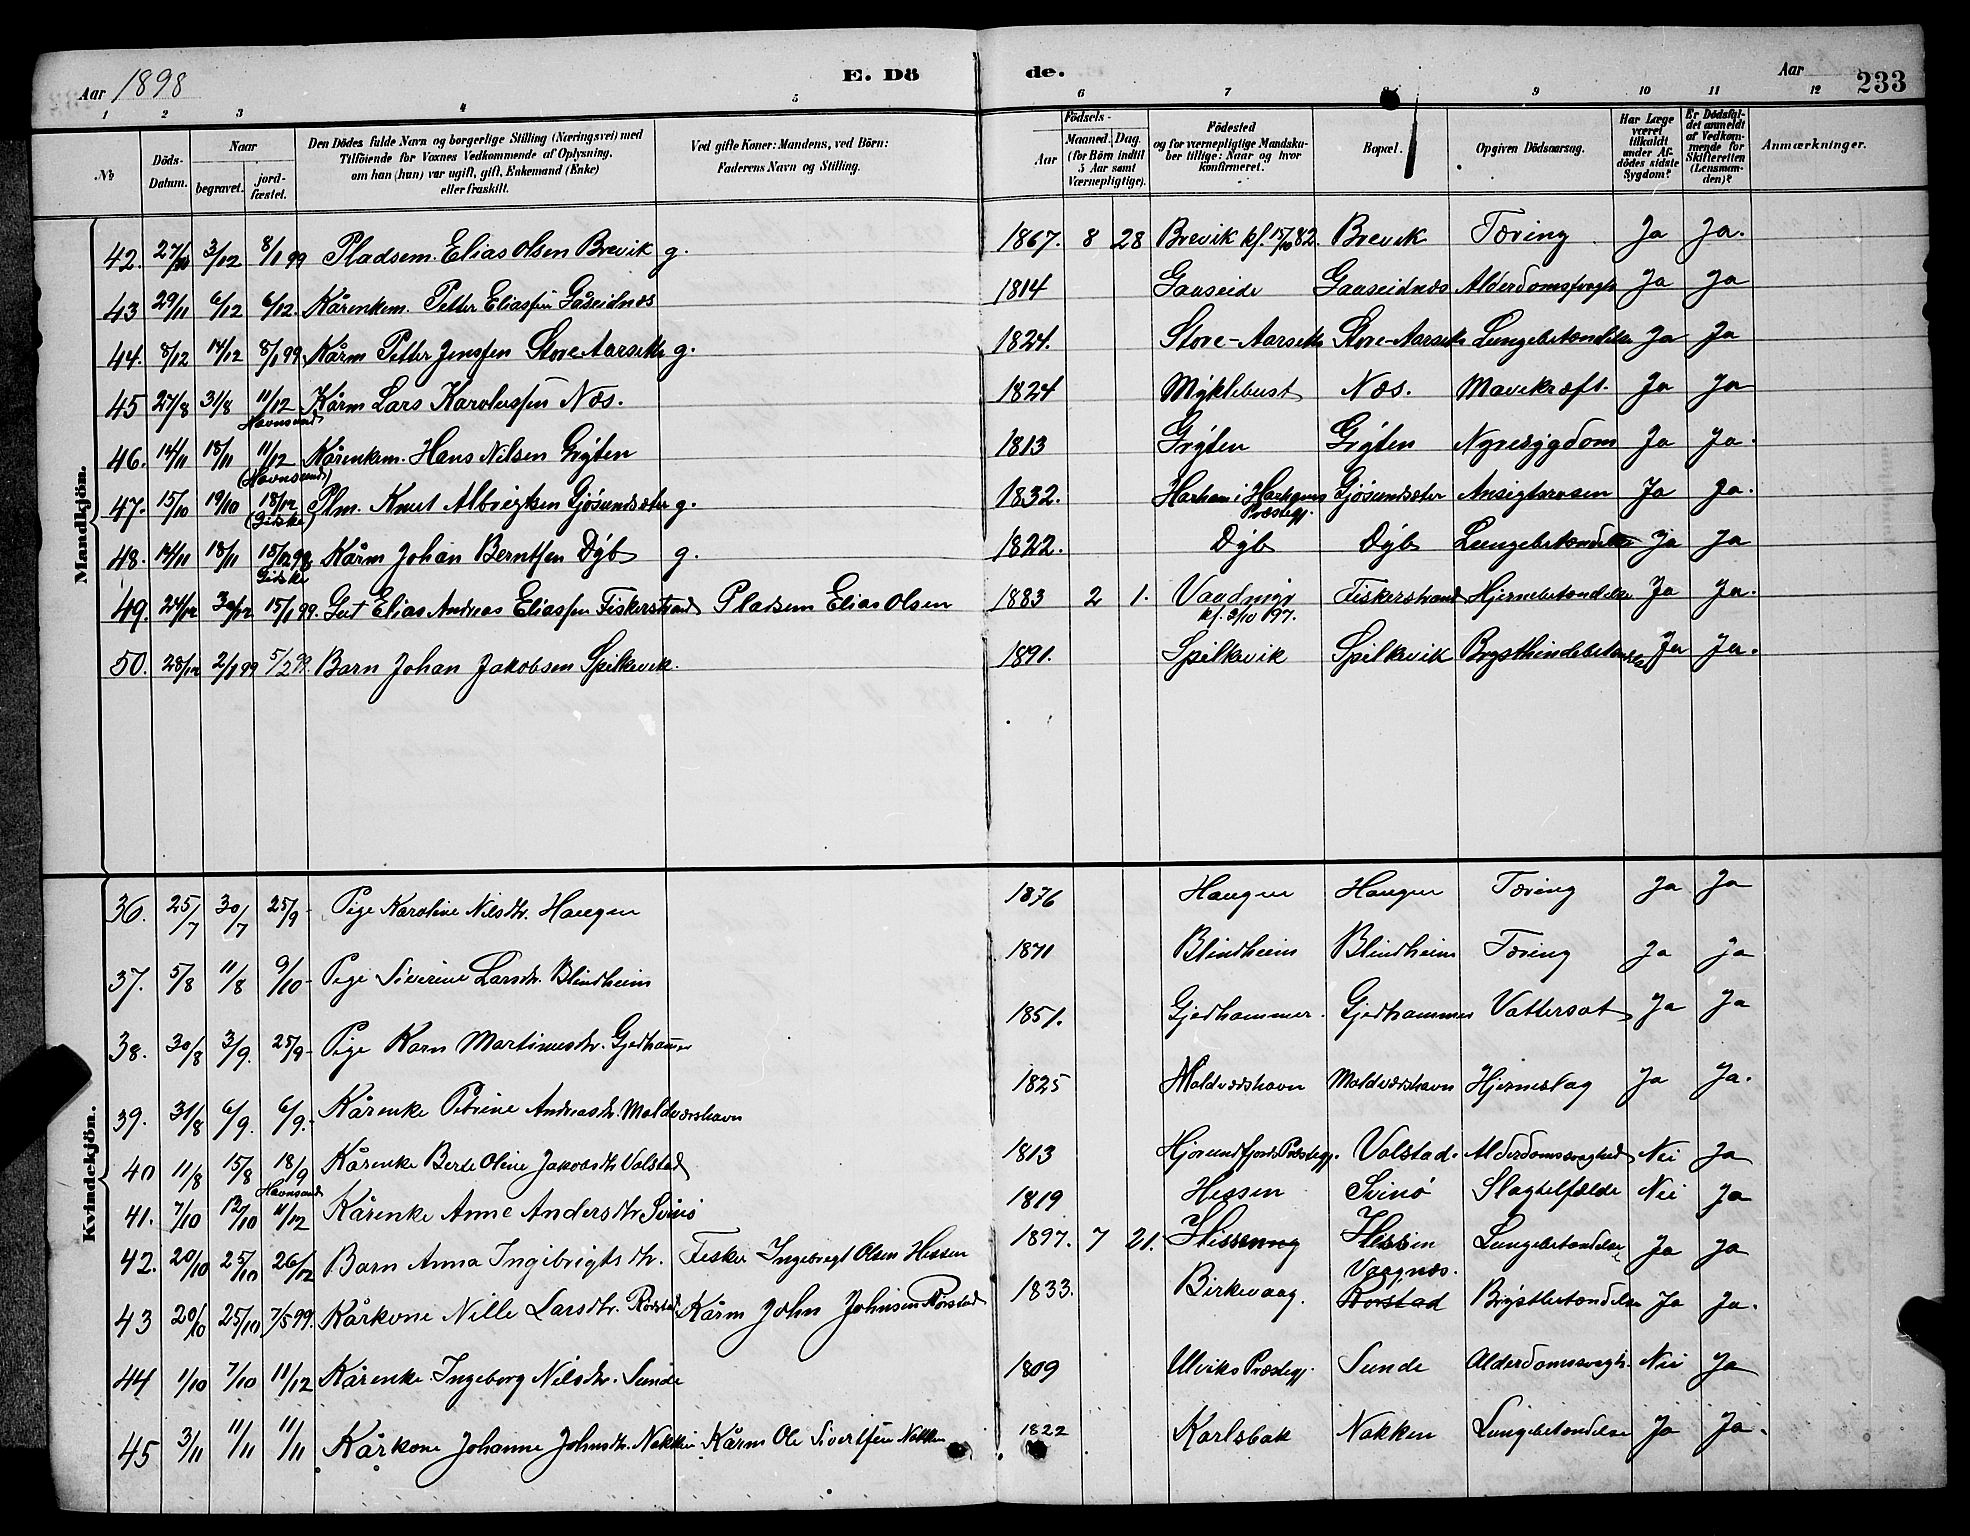 Aar 1898
E. Döde.
Aar
233
1 2 3 4 5 6 7 8 9 10 11 12
No
Döds-Datum.
Naar
begravet.
jord-fæstet.
Den Dödes fulde Navn og borgerlige Stilling (Næringsvei) med
Tilföiende for Voxnes Vedkommende af Oplysning,
om han (hun) var ugift, gift, Enkemand (Enke)
eller fraskilt.
Ved gifte Koner: Mandens, ved Börn:
Faderens Navn og Stilling.
Födsels-
Aar
Maaned. Dag.
(for Börn indtil
5 Aar samt
Værnepligtige).
Födested
og for værnepligtige Mandska-
ber tillige: Naar og hvor
konfirmeret.
Bopæl.
Opgiven Dödsaarsag.
Har Læge
været
tilkaldt
under Af-
dödes sidste
Sygdom?
Er Dödsfal-
det anmeldt
af Vedkom-
mende for
Skifteretten
(Lensman-
den)?
Anmærkninger.
Mandkjön.
42. 27/11 3/12 8/1 99 Pladsem. Elias Olsen Brevik g. 1867. 8 28 Brevik kf. 15/10 82. Brevik Tæring Ja Ja.
43 29/11 6/12 6/12. Kårenkem. Petter Eliassen Gåseidnæs 1814 Gaaseide Gaaseidnæs Alderdomssvagh Ja Ja
44. 8/12 14/12 8/1 99 Kårm Petter Jenssen Store Aarseth g. 1824. Store-Aarseth Store-Aarseth Lungebetændelse Ja Ja
45 27/8 31/8 11/12 Kårm Lars Karolussen Næs. 1824 Myklebust Næs. Mavekræft. Ja Ja
Havnsund
46. 14/11 18/11 11/12 Kårenkem. Hans Nilsen Gryten 1813 Gryten Gryten Nyresygdom Ja Ja.
(Havnsund)
47. 15/10 19/10 18/12 Plm. Knut Albrigtsen Gjösundsæter g. 1832. Harham i Harhams Gjösundsæter Ansigtsrosen Ja Ja.
(Giske) Præstegj.
48. 14/11 18/11 18/12 98 Kårm Johan Berntsen Dyb g. 1822. Dyb Dyb Lungebetændelse Ja Ja
Giske
49. 24/12 30/12 15/1 99. Gut Elias Andreas Eliassen Fiskerstrand Pladsem Elias Olsen 1883 2 1. Vaadnigr Fiskerstrand Hjernebetændelse Ja Ja.
kf. 3/10 97.
50. 28/12 2/1 99 5/2 99. Barn Johan Jakobsen Spilkevik. 1891. Spilkevik Spilkevik Brysthindebetændelse Ja Ja.
Kvindekjön.
36. 25/7 30/7 25/9- Pige Karoline Nilsdtr. Haugen 1876 Haugen Haugen Tæring Ja Ja
37. 5/8 11/8 9/10- Pige Siverine Larsdtr. Blindheim 1871 Blindheim Blindheim Tæring Ja Ja
38. 30/8 3/9. 25/9- Pige Karn Martinusdtr. Gjedhamer 1851. Gjedhammer. Gjedhammer Vattersot Ja Ja
39. 31/8 6/9. 6/9.- Kårenke Petrine Andreasdtr. Moldværshavn 1825 Moldværshavn Moldværshavn Hjerneslag Ja Ja.
40 11/8 15/8 18/9 Kårenke Berte Oline Jakobsdtr Volstad 1813 Hjörundfjords Præstegj. Volstad. Alderdomssvaghed Nei Ja
Havnsund
41. 7/10 12/10 11/12 Kårenke Anne Andersdtr Svinö 1819 Hessen Svinö Slagtilfælde Nei Ja
42. 20/10 25/10 26/12 Barn Anna Ingebrigtsdtr. Fisker Ingebrigt Olsen Hessen 1897. 7 21. Hessen Hessen Lungebetændelse Ja Ja
43 20/10 25/10 7/5 99. Kårkone Nille Larsdtr. Rörstad Kårm John Johnsen Rörstad 1833. Birkevaag. Vaagnæs. Rorstad Brystbetændelse Ja Ja.
44 1/10 7/10 11/12 Kårenke Ingeborg Nilsdtr. Sunde 1809 Ulviks Præstegj. Sunde Alderdomssvagh. Nei Ja
45 3/11 11/11 11/11 Kårkone Johanne Johnsdtr. Nakken Kårm Ole Sivertsen Nakken 1822 Karlsbak Nakken Lungebetændelse Ja Ja.